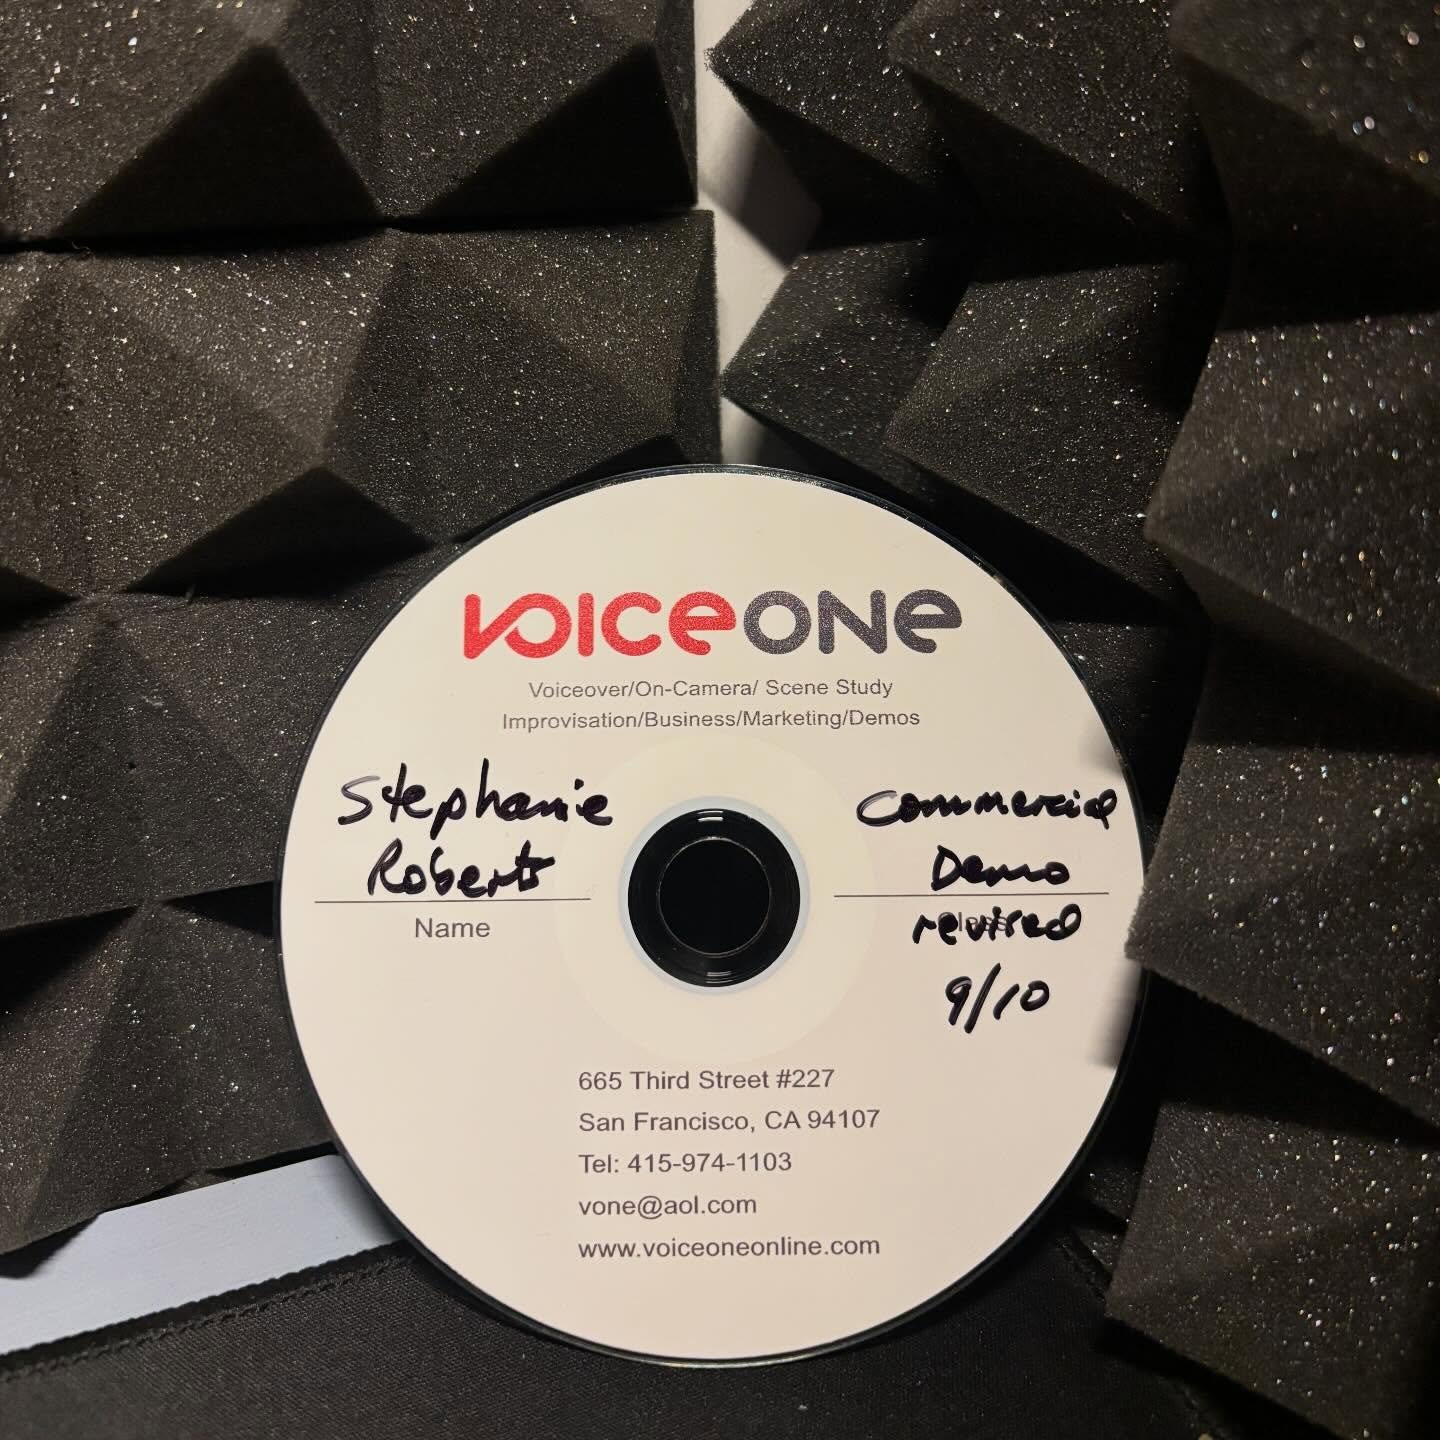 VOICEONE
Voiceover/On-Camera/ Scene Study
Improvisation/Business/Marketing/Demos
Stephanie
Roberts
Name
Commercial
Demo
revised
Class
9/10
665 Third Street #227
San Francisco, CA 94107
Tel: 415-974-1103
vone@aol.com
www.voiceoneonline.com